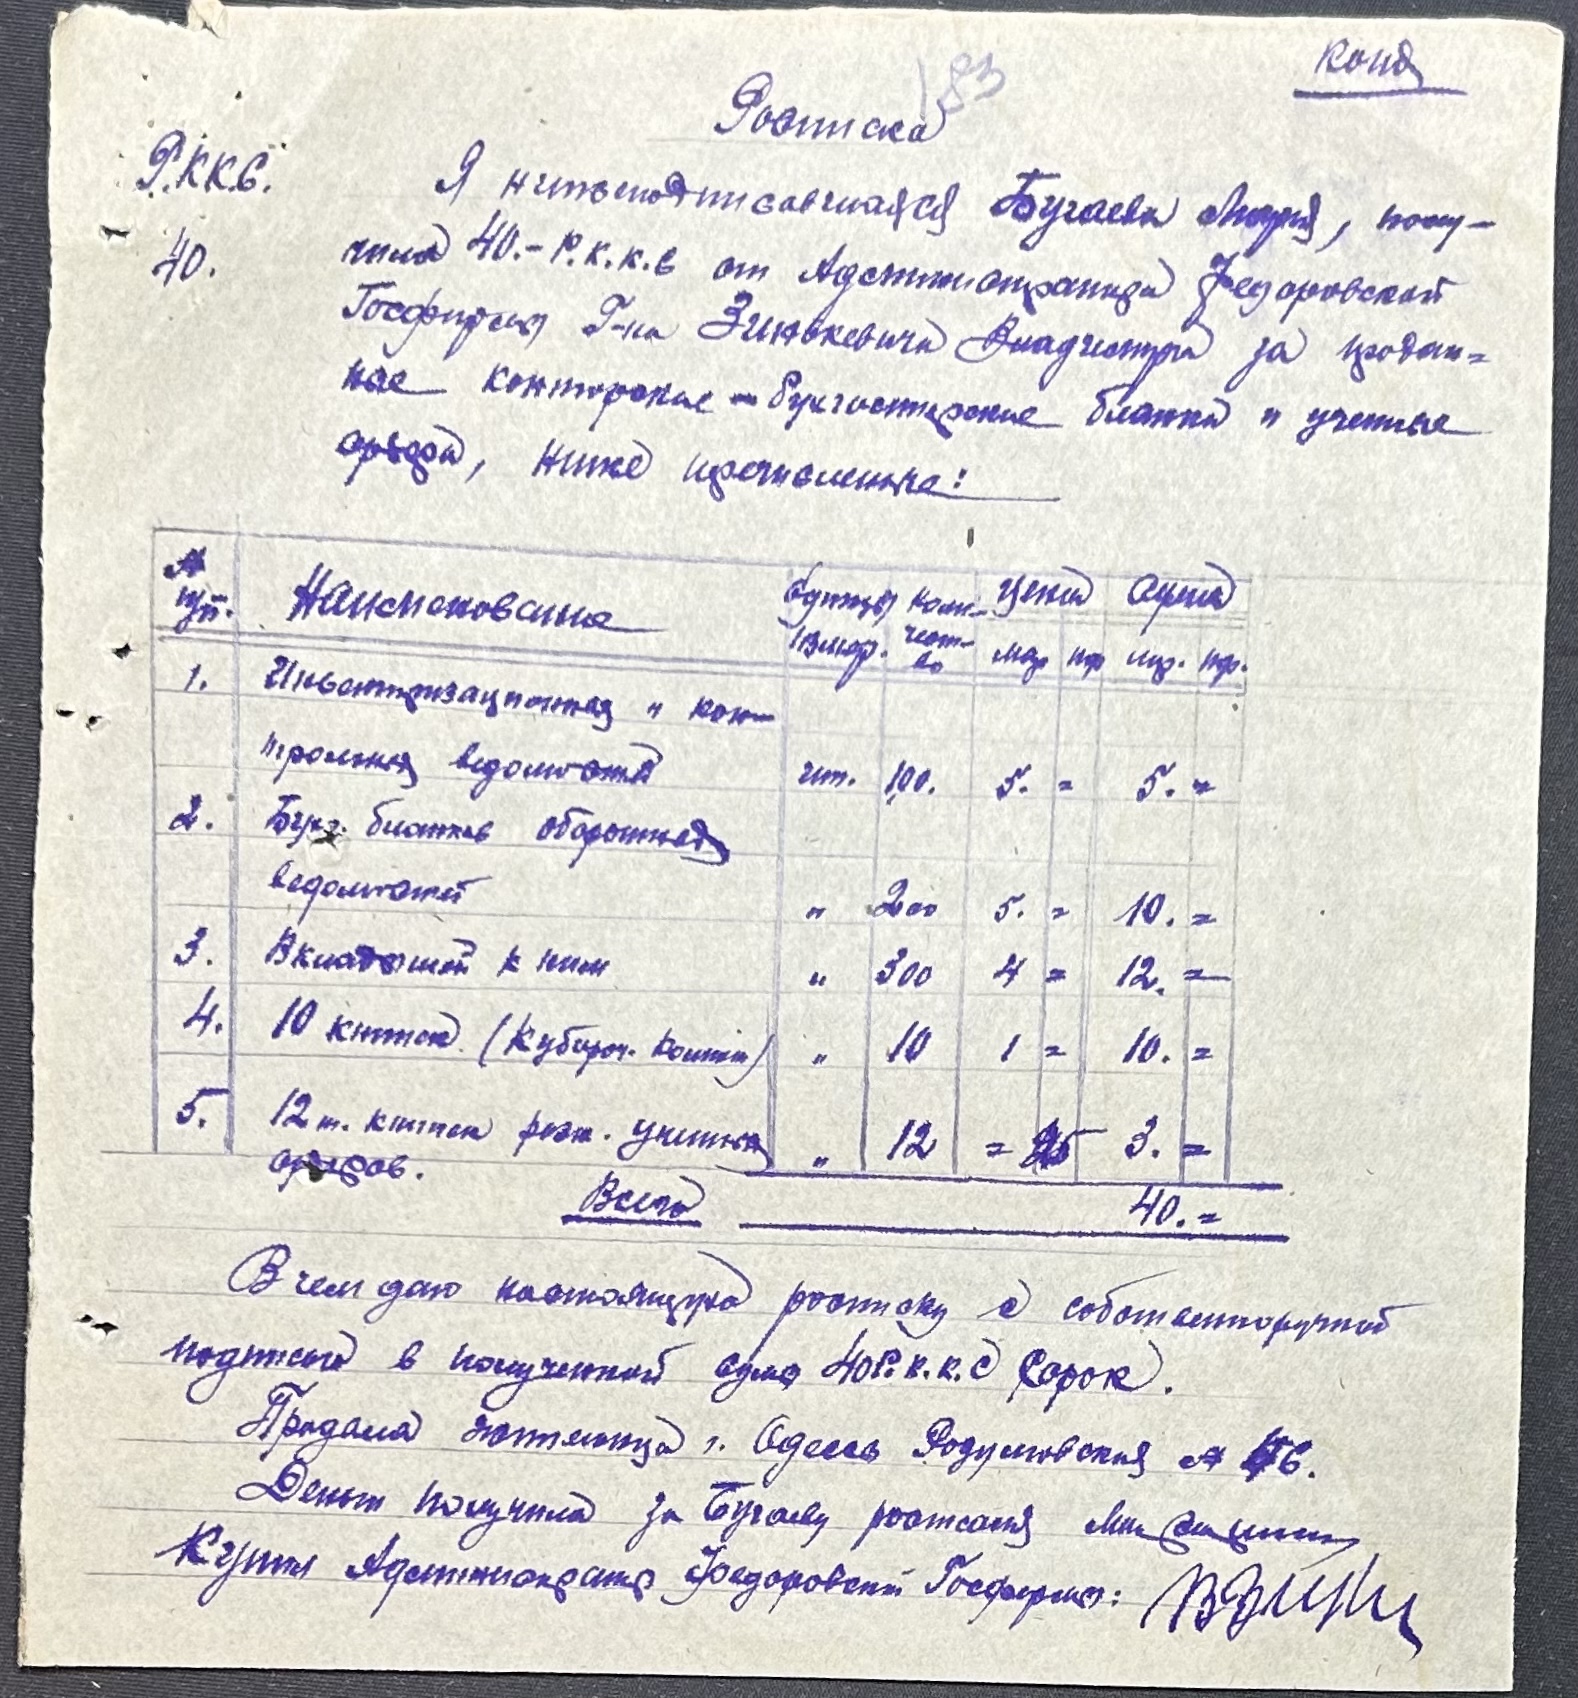 копия
183
Росписка
Р.К.К.С.
40.
Я нижеподписавшаяся Бугаева Мария, полу-
чила 40.- Р.К.К.С от Администратора Федоровской
Госфермы Г-на Зинькевича Владимира за продан-
ные конторские - бухгалтерские бланки и учетные
ордера, ниже пречисленные:
№ п/п. Наименование единица измер. коли-чест-во цена сумма
мар пф мар. пф.
1. Инвентаризационная и кон-
трольная ведомостей шт. 100. 5. = 5. =
2. Бухг. бланков оборотная
ведомостей " 200 5. = 10. =
3. Вкладышей к ним " 300 4 = 12. =
4. 10 книжек ( ) " 10 1 = 10. =
5. 12 т. книжек разн. учетных " 12 = 25 3. =
ордеров.
Всего 40. =
В чем даю настоящую росписку с собственноручной
подписью в полученной сумме 40 Р.К.К.С (сорок).
Продала жительница г. Одессы № 6.
Деньги получила за Бугаеву росписалась
Купил Администратор Федоровской Госфермы: